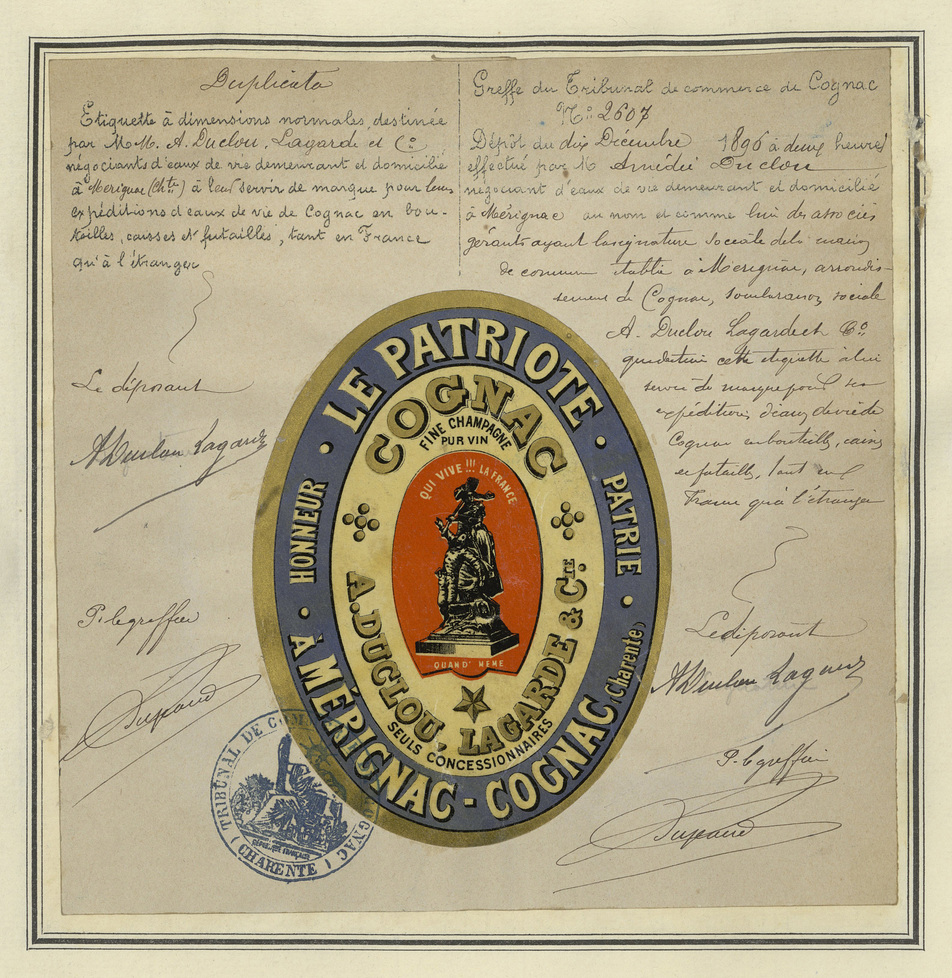 Duplicata
Etiquette à dimensions normales, destinée
par M.M. A. Duclou, Lagarde et Cie
négociants d'eaux de vie demeurant et domicilié
à Mérignac (Chte) à leur servir de marque pour leurs
expéditions d'eaux de vie de Cognac en bou-
teilles, caisses et futailles, tant en France
qu'à l'étranger
Le déposant
A Duclou Lagarde
P. le greffier
Greffe du Tribunal de commerce de Cognac
No 2607
Dépôt du dix Décembre 1896 à deux heures
effectué par M Amédée Duclou
négociant d'eaux de vie demeurant et domicilié
à Mérignac au nom et comme l'un des associés
gérants ayant la signature sociale de la maison
de commerce établie à Mérignac, arrondis-
sement de Cognac, sous la raison sociale
A. Duclou Lagarde et Co
qui destine cette étiquette à lui
servir de marque pour ses
expéditions d'eaux de vie de
Cognac en bouteilles, caisses
et futailles, tant en
France qu'à l'étranger
Le déposant
A Duclou Lagarde
P. le greffier
LE PATRIOTE
HONNEUR
PATRIE
COGNAC
FINE CHAMPAGNE
PUR VIN
QUI VIVE !!! LA FRANCE
QUAND' MEME
A. DUCLOU, LAGARDE & CIE.
SEULS CONCESSIONNAIRES
À MÉRIGNAC - COGNAC (Charente)
TRIBUNAL DE COM GNAC
RÉPUBLIQUE FRANÇAISE
(CHARENTE)